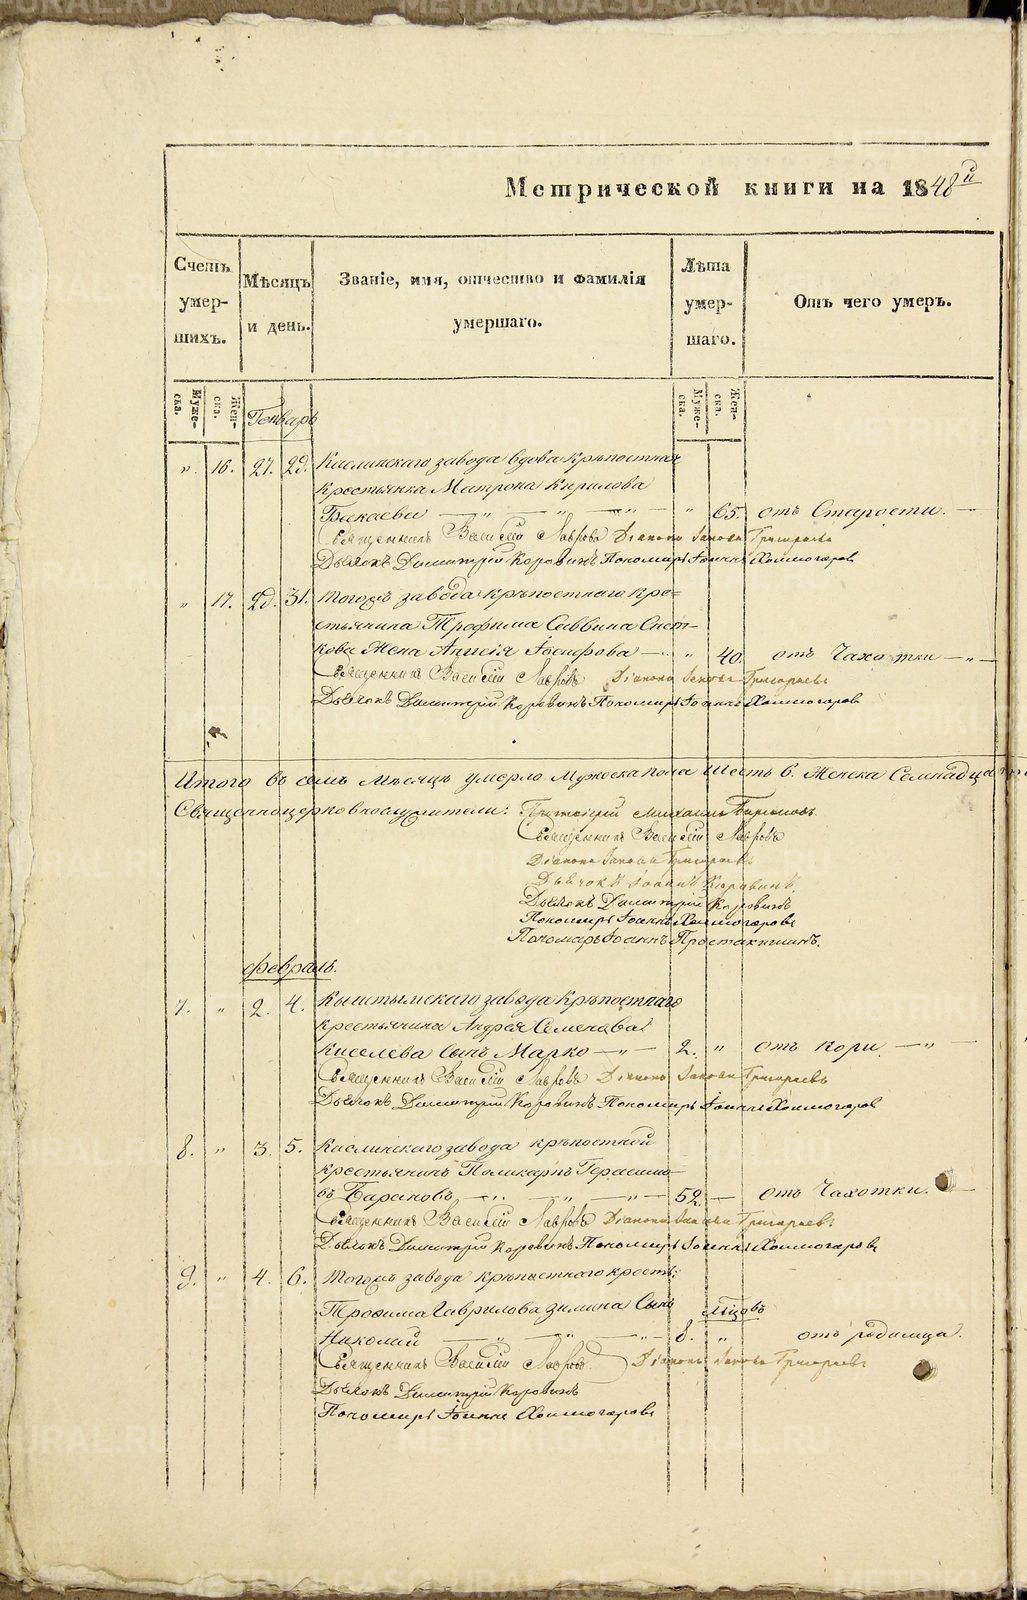 Метрической книги на 1848й
Счетъ умер-шихъ.
Мѣсяцъ и день.
Званіе, имя, отчество и фамилія умершаго.
Лѣта умер-шаго.
Отъ чего умеръ.
Муже-ска.
Жен-ска.
Муже-ска.
Жен-ска.
Генварь
" 16. 27. 29. Каслинскаго завода вдова крѣпостная
крестьянка Матрона Кирилова
Бакаева — " — " — " 65. отъ Старости. —
Священникъ Василій Лавровъ Діаконъ Іаковъ Григорьевъ
Дьячокъ Димитрій Коровинъ Пономарь Іоаннъ Холмогоровъ
" 17. 29. 31. Тогожъ завода крѣпостнаго кре=
стьянина Трофима Саввина Снет-
кова Жена Анисія Іосифова — " 40. отъ Чахотки — " —
Священникъ Василій Лавровъ Діаконъ Іаковъ Григорьевъ
Дьячокъ Димитрій Коровинъ Пономарь Іоаннъ Холмогоровъ
Итого въ семъ мѣсяцѣ умерло Мужеска пола Шесть 6. Женска Семнадцать
Священноцерковнослужители: Протоіерей Михаилъ
Священникъ Василій Лавровъ
Діаконъ Іаковъ Григорьевъ
Дьячокъ Іоаннъ Коровинъ
Дьячокъ Димитрій Коровинъ
Пономарь Іоаннъ Холмогоровъ
Пономарь Іоаннъ Простакишинъ.
Февраль.
7. " 2. 4. Кыштымскаго завода крѣпостнаго
крестьянина Андрея Семенова
Киселева Сынъ Марко — " — 2. " отъ кори. — " —
Священникъ Василій Лавровъ Діаконъ Іаковъ Григорьевъ
Дьячокъ Димитрій Коровинъ Пономарь Іоаннъ Холмогоровъ
8. " 3. 5. Каслинскаго завода крѣпостной
крестьянинъ Поликарпъ Герасимо-
въ Барановъ — " — " — " — 52. — отъ Чахотки. —
Священникъ Василій Лавровъ Діаконъ Іаковъ Григорьевъ
Дьячокъ Димитрій Коровинъ Пономарь Іоаннъ Холмогоровъ
9. " 4. 6. Тогожъ завода крѣпостнаго крестъ:
Трофима Гаврилова Зимина Сынъ мѣцовъ
Николай — " — " — " — 8. " отъ родимца.
Священникъ Василій Лавровъ. Діаконъ Іаковъ Григорьевъ
Дьячокъ Димитрій Коровинъ
Пономарь Іоаннъ Холмогоровъ
METRIKI.GASO-URAL.RU